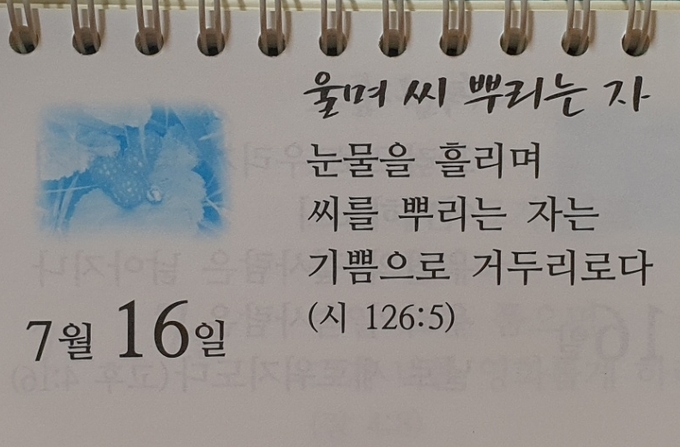 울며 씨 뿌리는 자
눈물을 흘리며
씨를 뿌리는 자는
기쁨으로 거두리로다
(시 126:5)
7월 16일